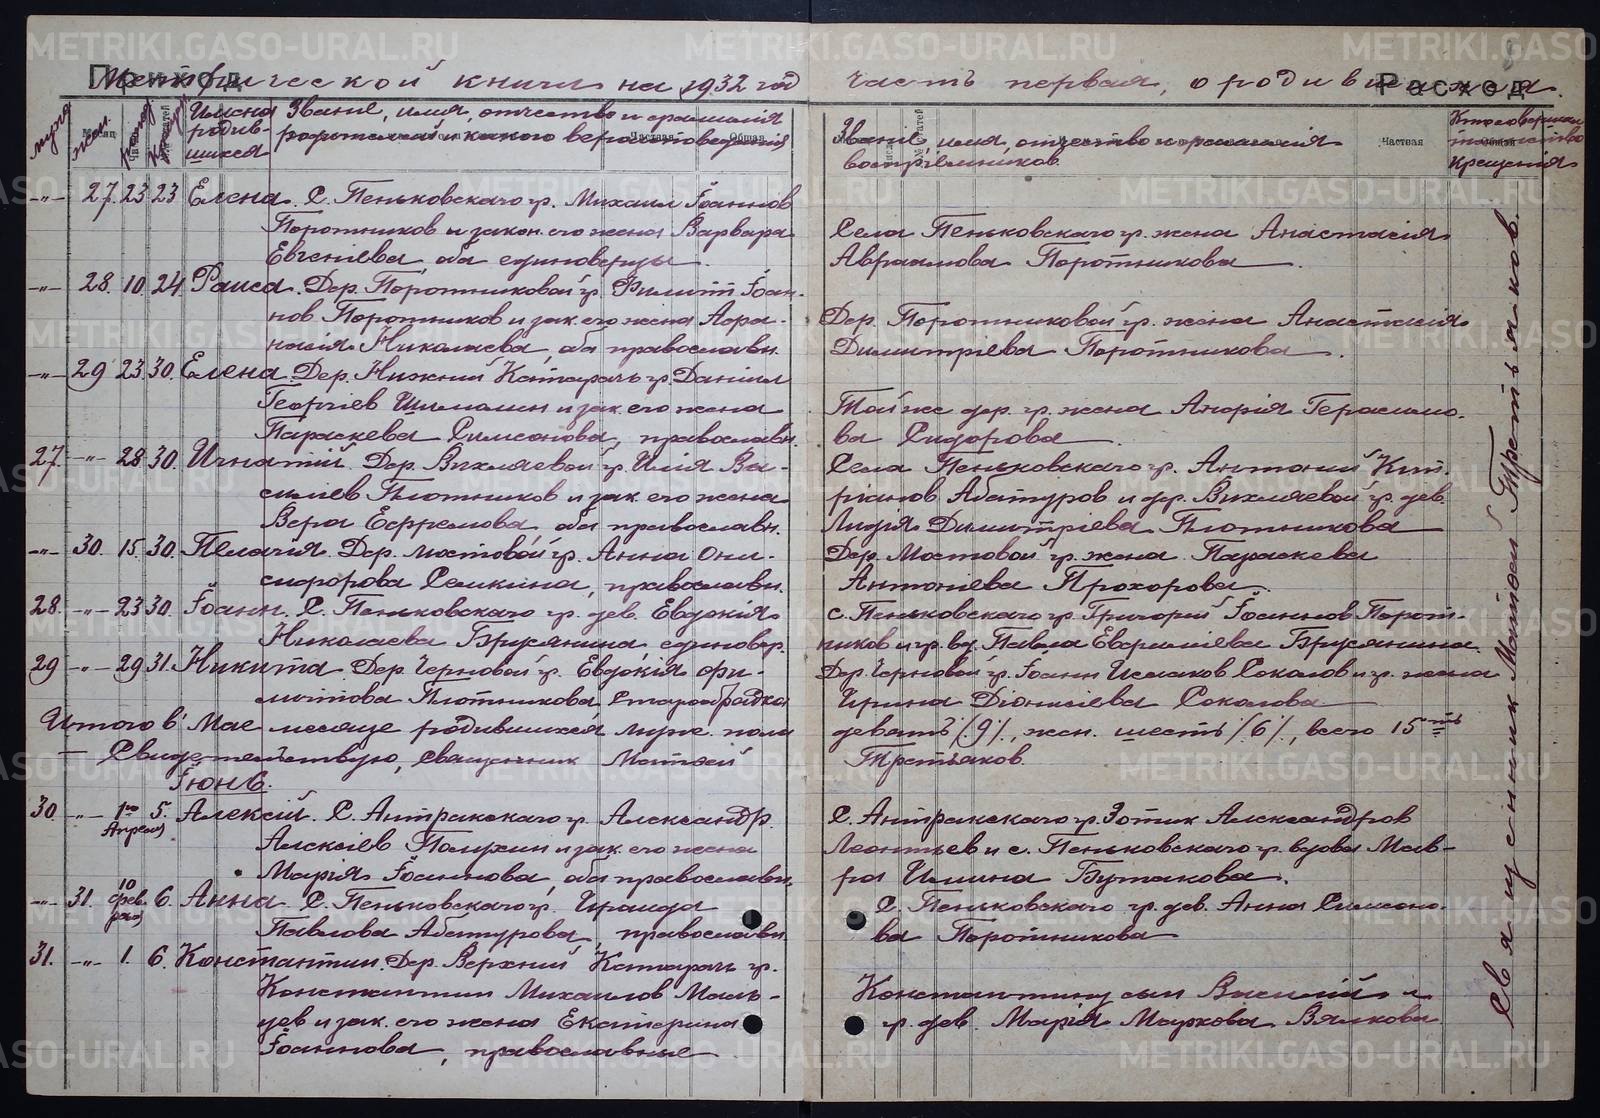 Метрической книги на 1932 год часть первая, о родившихся.
Приход
Расход
мужя жен.
Имена родив-шихся
Званіе, имя, отчество и фамилія
родителей, и какого вероисповеданія
Званіе, имя, отчество и фамилія
воспріемников.
Кто совершал
таинство
крещенія
Месяц
Частная
Общая
Частная
Общая
-"- 27. 23 23 Елена. С. Пеньковскаго гр. Михаил Іоаннов
Поротников и закон. его жена Варвара
Евгеніева, оба единоверцы.
Села Пеньковскаго гр. жена Анастасія
Авраамова Поротникова.
-"- 28. 10. 24 Раиса. Дер. Поротниковой гр. Филипп Іоан-
нов Поротников и зак. его жена Афа-
насія Николаева, оба православн.
Дер. Поротниковой гр. жена Анастасія
Димитріева Поротникова.
-"- 29 23. 30. Елена. Дер. Нижний Катарач гр. Даніил
Георгіев Шимолин и зак. его жена
Параскева Симеонова, православн.
Той же дер. гр. жена Агафія Герасимо-
ва Сидорова.
27. -"- 28 30. Игнатій. Дер. Вихляевой гр. Илія Ва-
силіев Плотников и зак. его жена
Вера Ефремова, оба православн.
Села Пеньковскаго гр. Антоний Кип-
ріанов Абатуров и дер. Вихляевой гр. дев.
Лидія Димитріева Плотникова
-"- 30. 15. 30. Пелагія. Дер. Мостовой гр. Анна Они-
сифорова Семкина, православн.
Дер. Мостовой гр. жена Параскева
Антоніева Прохорова.
28. -"- 23 30 Іоанн. С. Пеньковскаго гр. дев. Евдокия
Николаева Брусянина, единовер.
с. Пеньковскаго гр. Григорий Іоаннов Порот-
ников и гр. вд. Павла Евфиміева Брусянина.
29 -"- 29 31. Никита. Дер. Черновой гр. Евдокія Фи-
липпова Плотникова. Старообрядка
Дер. Черновой гр. Іоанн Исааков Соколов и гр. жена
Ирина Діонисіева Соколова
Итого в Мае месяце родившихся муж. пола
девять /9/, жен. шесть /6/, всего 15ть
Свидетельствую, Священник Матвей
Третьяков.
Іюнь.
30. -"- 1го Апреля 5. Алексій. С. Антракскаго гр. Александр
Алексіев Полухин и зак. его жена
Марія Іоаннова, оба православн.
С. Антракскаго гр. Зотик Александров
Леонтьев и с. Пеньковскаго гр. вдова Мав-
ра Ильина Бутакова.
-"- 31. 10 февраля 6. Анна. С. Пеньковскаго гр. Ираида
Павлова Абатурова, православн.
С. Пеньковскаго гр. дев. Анна Симеоно-
ва Поротникова
31. -"- 1. 6. Константин. Дер. Верхний Катарач гр.
Константин Михаилов Маль-
цев и зак. его жена Екатерина
Іоаннова, православные
Константину сын Василій и
гр. дев. Марія Маркова Вялкова
Священник Матвей Третьяков.
METRIKI.GASO-URAL.RU